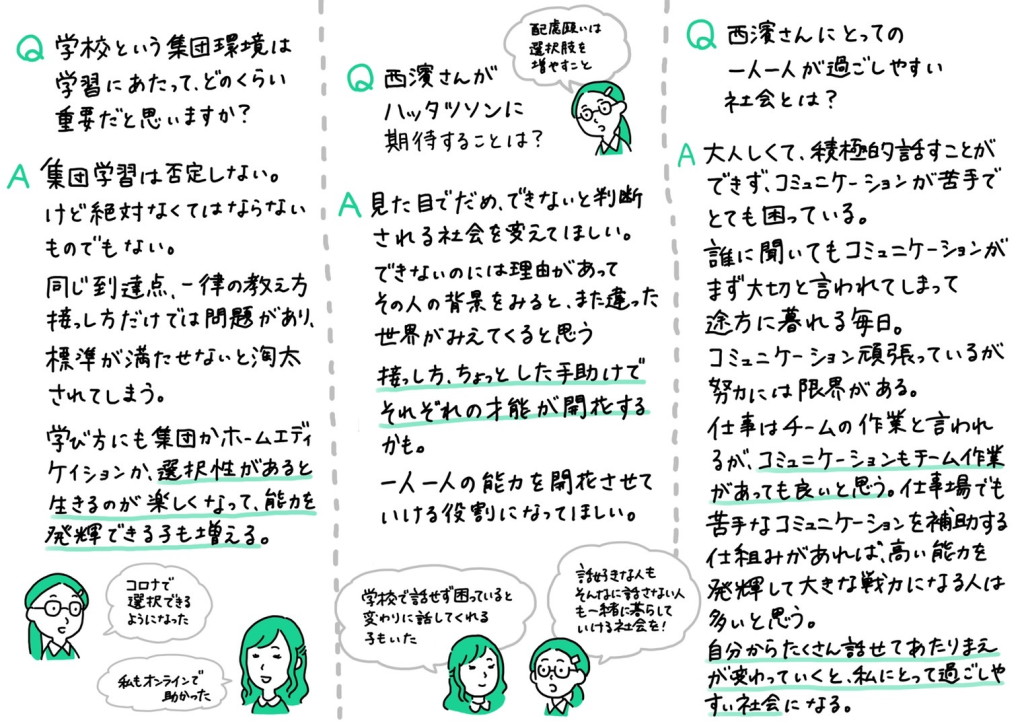 Q 学校という集団環境は
学習にあたって、どのくらい
重要だと思いますか?
A 集団学習は否定しない。
けど絶対なくてはならない
ものでもない。
同じ到達点、一律の教え方
接っし方だけでは問題があり、
標準が満たせないと淘太
されてしまう。
学び方にも集団かホームエディ
ケイションか、選択性があると
生きるのが楽しくなって、能力を
発輝できる子も増える。
コロナで
選択できる
ようになった
私もオンラインで
助かった
配慮願いは
選択肢を
増やすこと
Q 西濱さんが
ハッタツソンに
期待することは?
A 見た目でだめ、できないと判断
される社会を変えてほしい。
できないのには理由があって
その人の背景をみると、また違った
世界がみえてくると思う
接っし方、ちょっとした手助けで
それぞれの才能が開花する
かも。
一人一人の能力を開花させて
いける役割になってほしい。
学校で話せず困っていると
変わりに話してくれる
子もいた
話好きな人も
そんなに話さない人
も一緒に暮らして
いける社会を!
Q 西濱さんにとっての
一人一人が過ごしやすい
社会とは?
A 大人しくて、積極的話すことが
できず、コミュニケーションが苦手で
とても困っている。
誰に聞いてもコミュニケーションが
まず大切と言われてしまって
途方に暮れる毎日。
コミュニケーション頑張っているが
努力には限界がある。
仕事はチームの作業と言われ
るが、コミュニケーションもチーム作業
があっても良いと思う。仕事場でも
苦手なコミュニケーションを補助する
仕組みがあれば、高い能力を
発輝して大きな戦力になる人は
多いと思う。
自分からたくさん話せてあたりまえ
が変わっていくと、私にとって過ごしや
すい社会になる。